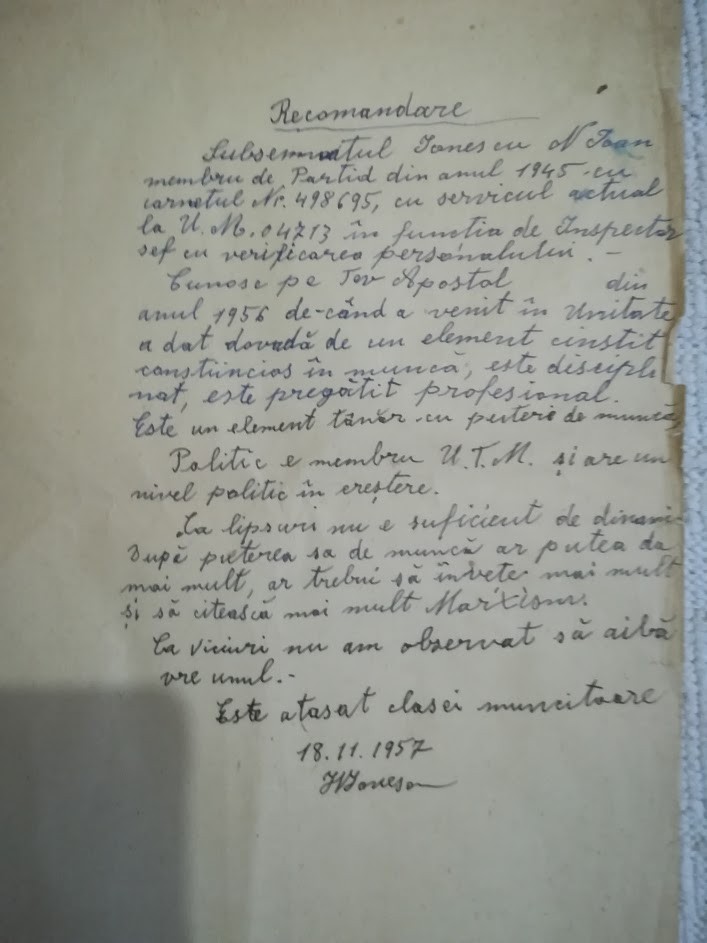 Recomandare
Subsemnatul Ionescu N Ioan
membru de Partid din anul 1945 cu
carnetul Nr. 498695, cu servicul actual
la U.M. 04713 în functia de Inspector
sef cu verificarea personalului. -
Cunosc pe Tov Apostol din
anul 1956 de-când a venit în Unitate
a dat dovadă de un element cinstit
constiincios în muncă, este discipli
nat, este pregătit profesional.
Este un element tânăr cu putere de muncă,
Politic e membru U.T.M. și are un
nivel politic în creștere.
Ca lipsuri nu e suficient de dinami-
După puterea sa de muncă ar putea da
mai mult, ar trebui să învete mai mult
și să citească mai mult Marxism.
Ca viciuri nu am observat să aibă
vre unul. -
Este atasat clasei muncitoare
18.11.1957
NIonescu